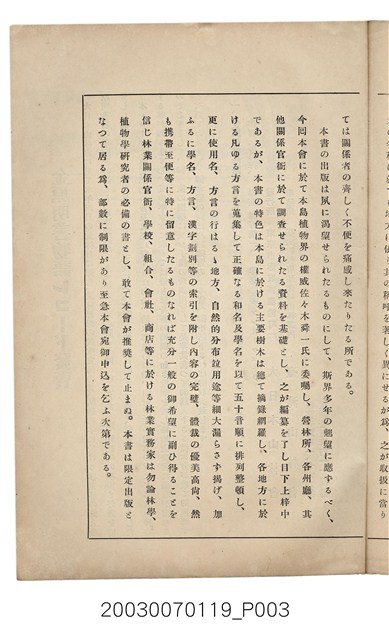 ては關係者の齊しく不便を痛感し來たりたる所である。
本書の出版は夙に渇望せられたるものにして、斯界多年の翹望に應するべく、
今囘本會に於て本島植物界の權威佐々木舜一氏に委囑し、營林所、各州廳、其
他關係官衙に於て調査せられたる資料を基礎とし、之が編纂を了し目下上梓中
であるが、本書の特色は本島に於ける主要樹木は總て摘錄網羅し、各地方に於
ける凡ゆる方言を蒐集して正確なる和名及學名を以て五十音順に排列整頓し、
更に使用名、方言の行はるゝ地方、自然的分布竝用途等細大漏らさず揭げ、加
ふるに學名、方言、漢字劃別等の索引を附し內容の完璧、體裁の優美高尙、然
も携帶至便等に特に留意したるものなれば充分一般の御希望に副ひ得ることを
信じ林業關係官衙、學校、組合、會社、商店等に於ける林業實務家は勿論林學、
植物學研究者の必備の書とし、敢て本會が推奬して止まぬ。本書は限定出版と
なつて居る爲、部數に制限があり至急本會宛御申込を乞ふ次第である。
20030070119_P003